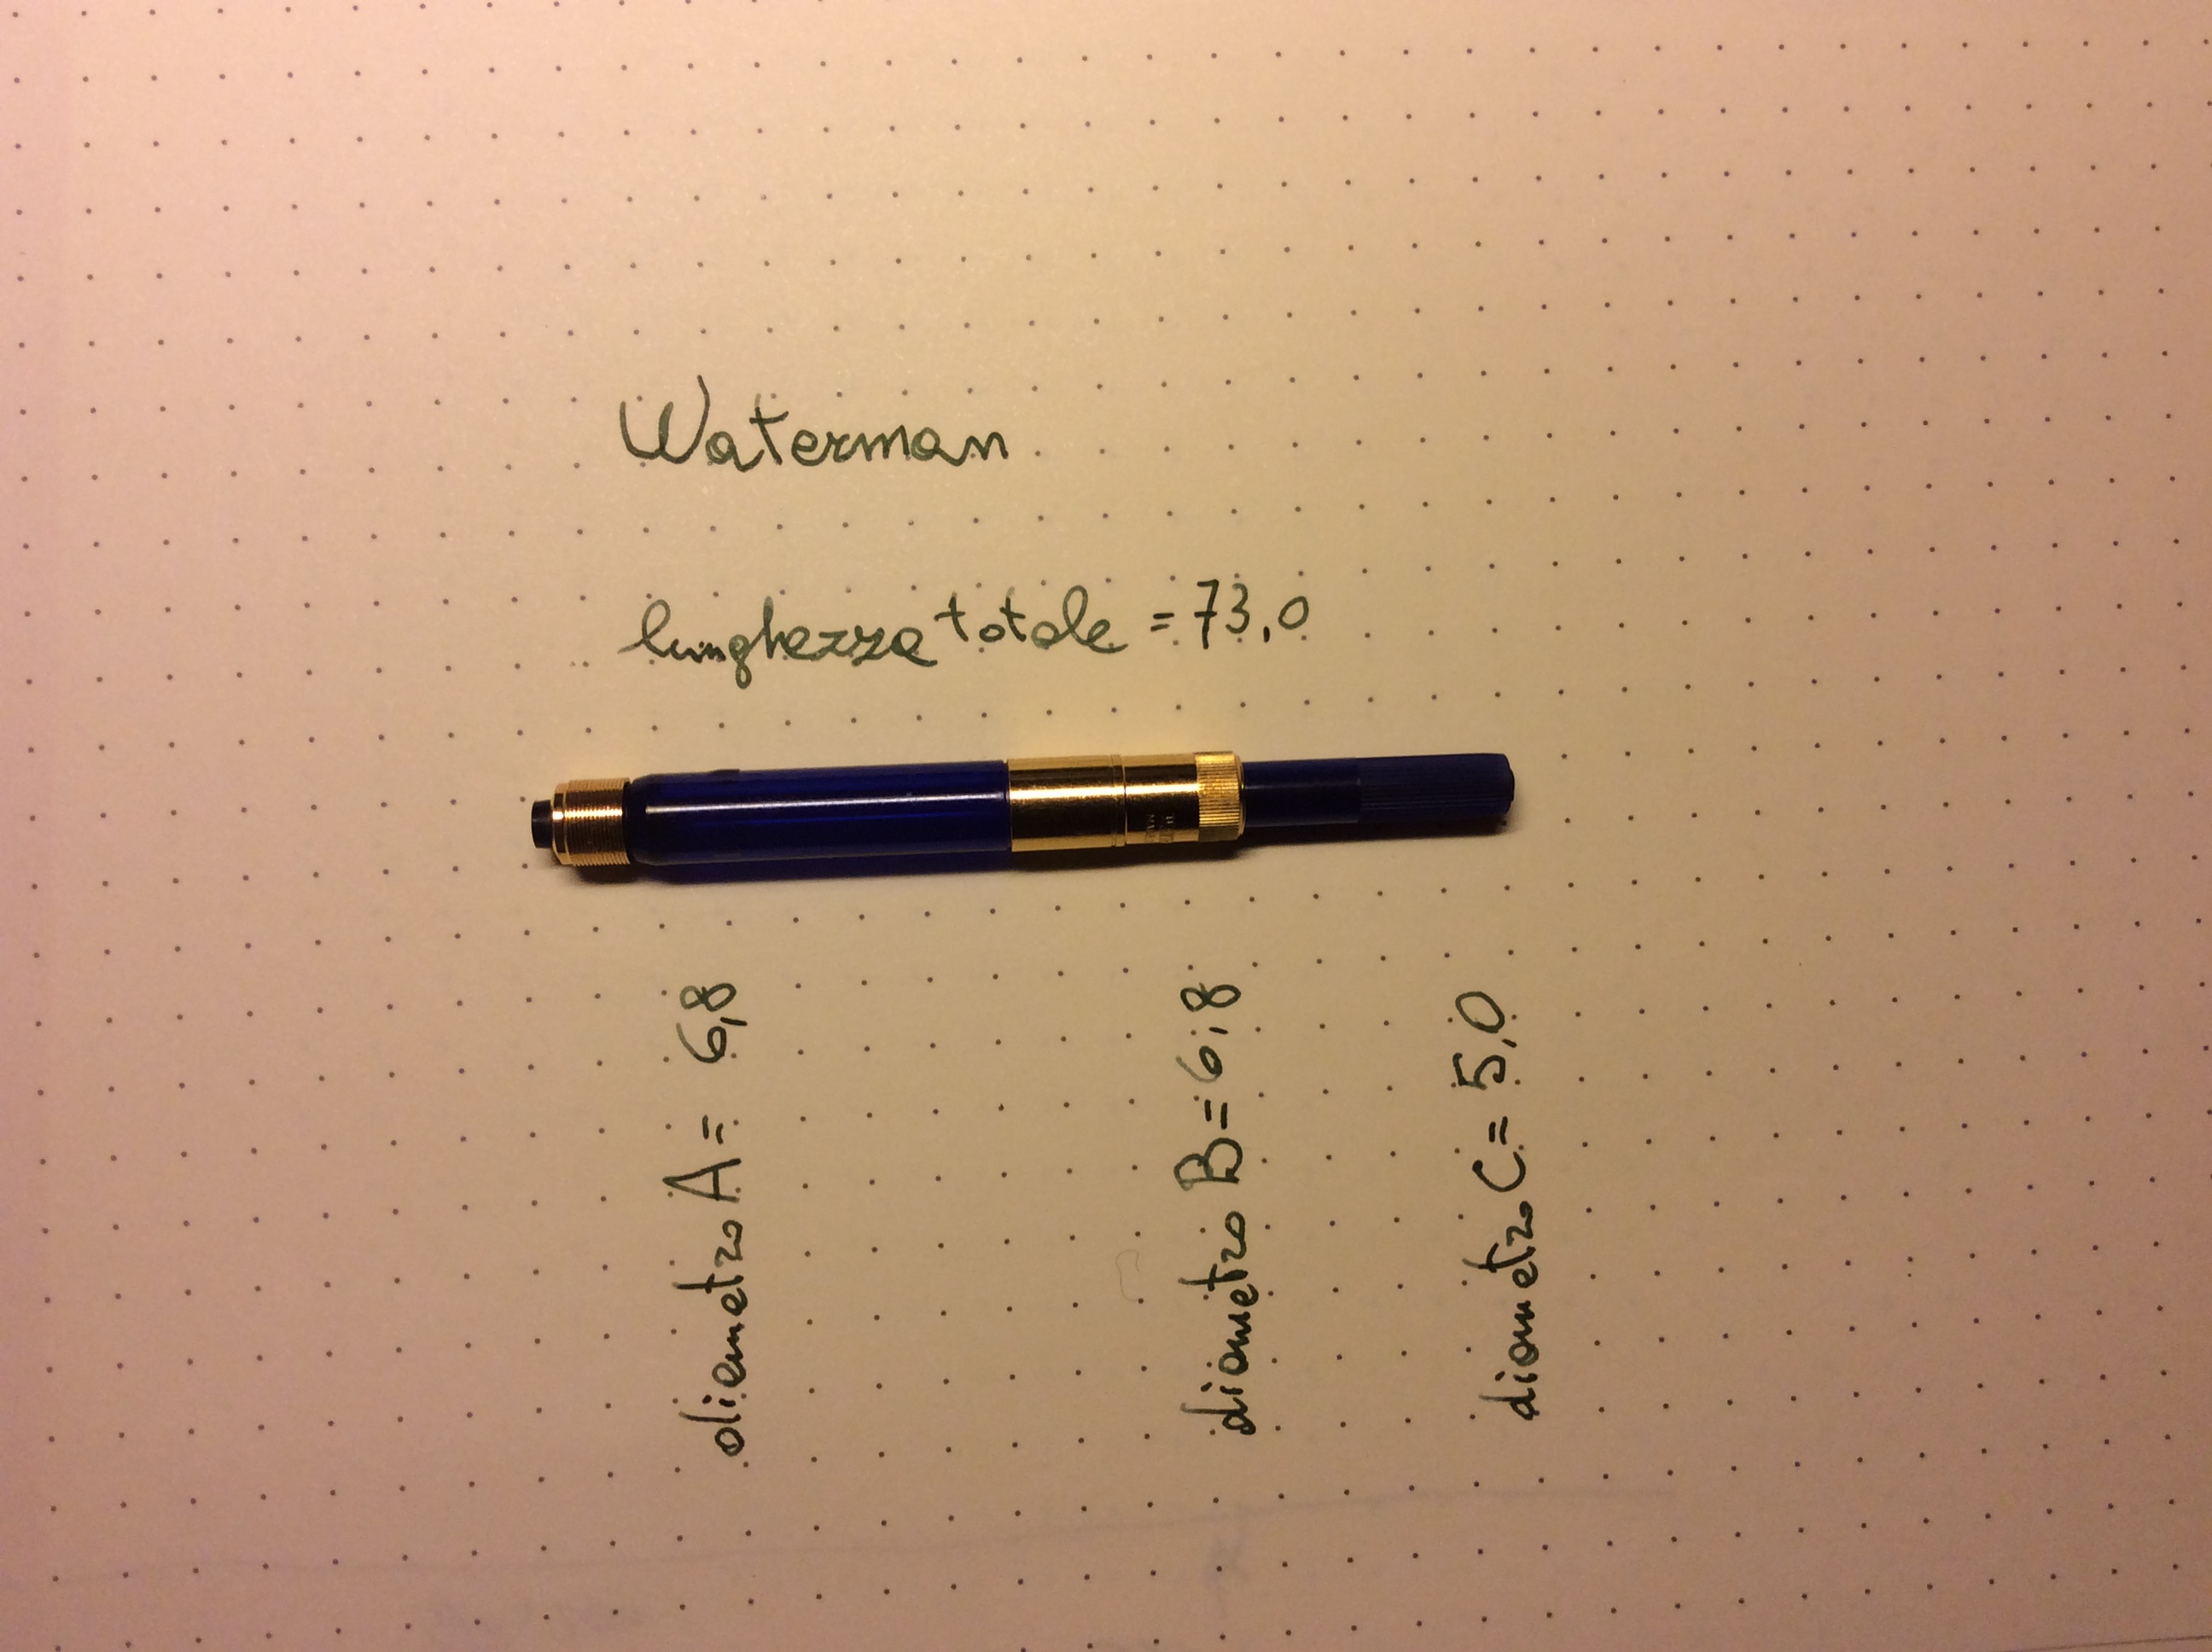 Waterman
lunghezza totale = 73,0
diametro A = 6,8
diametro B = 6,8
diametro C = 5,0